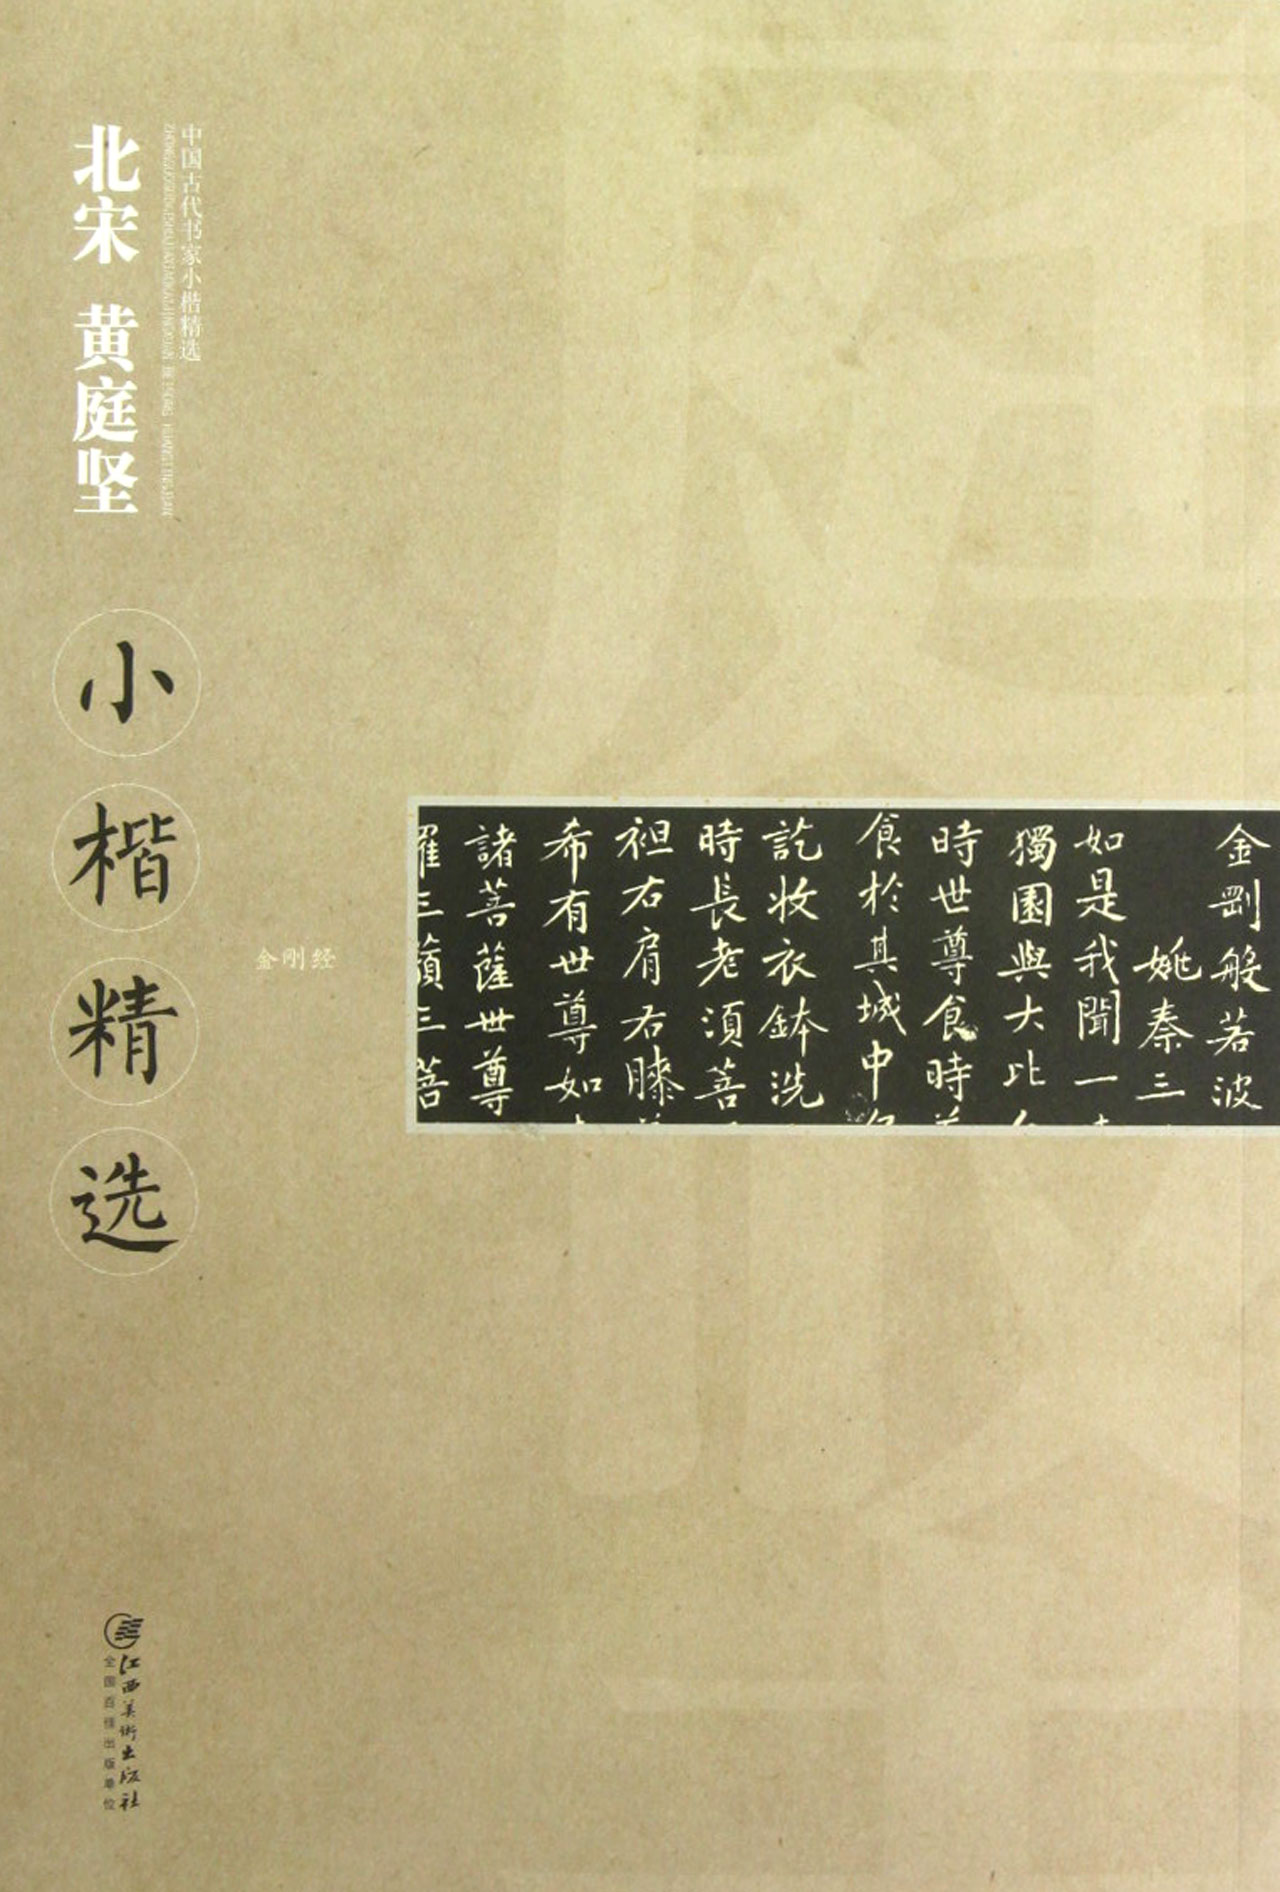 中国古代书家小楷精选
北宋 黄庭坚
小楷精选
金刚经
金剛般若波
姚秦三
如是我聞一
獨園與大比
時世尊食時
食於其城中
訖收衣鉢洗
時長老須菩
袒右肩右膝
希有世尊如
諸菩薩世尊
羅三藐三菩
江西美术出版社
全国百佳出版单位